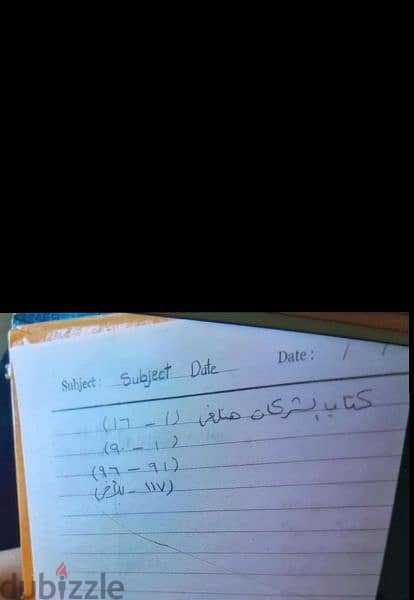 Date: / /
Subject: Subject Date
كتاب (١ - ١٦)
(١ - ٩٠)
(٩١ - ٩٦)
(١١٧ -
dubizzle